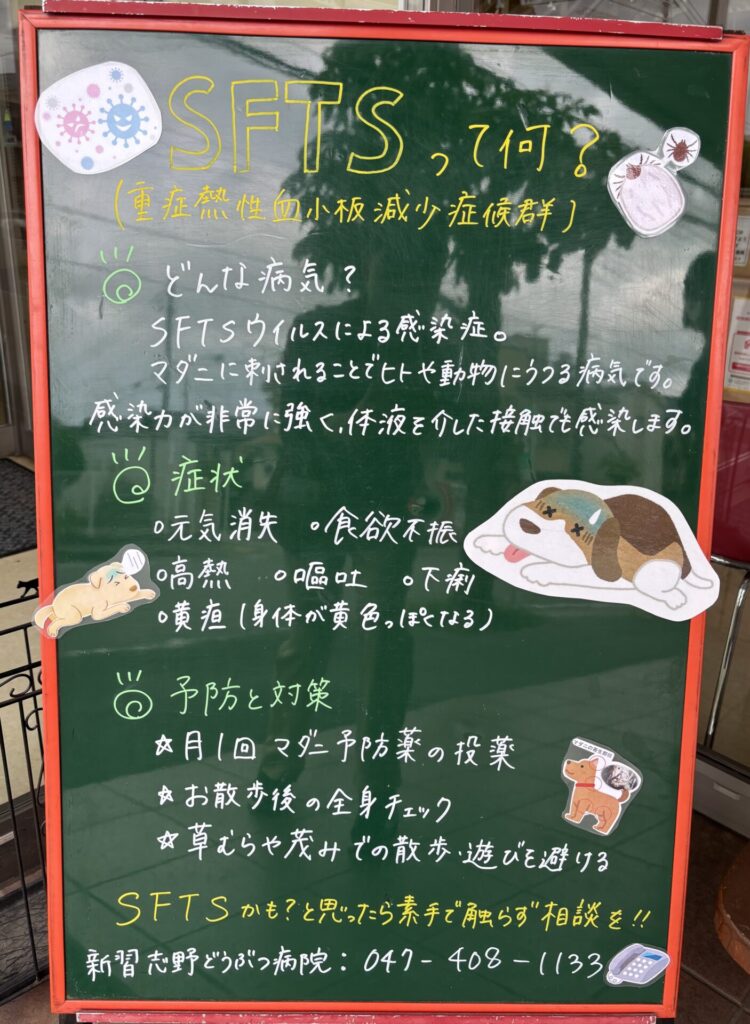 SFTSって何?
(重症熱性血小板減少症候群)
どんな病気?
SFTSウイルスによる感染症。
マダニに刺されることでヒトや動物にうつる病気です。
感染力が非常に強く、体液を介した接触でも感染します。
症状
○元気消失 ○食欲不振
○高熱 ○嘔吐 ○下痢
○黄疸(身体が黄色っぽくなる)
予防と対策
☆月1回マダニ予防薬の投薬
☆お散歩後の全身チェック
☆草むらや茂みでの散歩・遊びを避ける
SFTSかも?と思ったら素手で触らず相談を!!
新習志野どうぶつ病院:047-408-1133